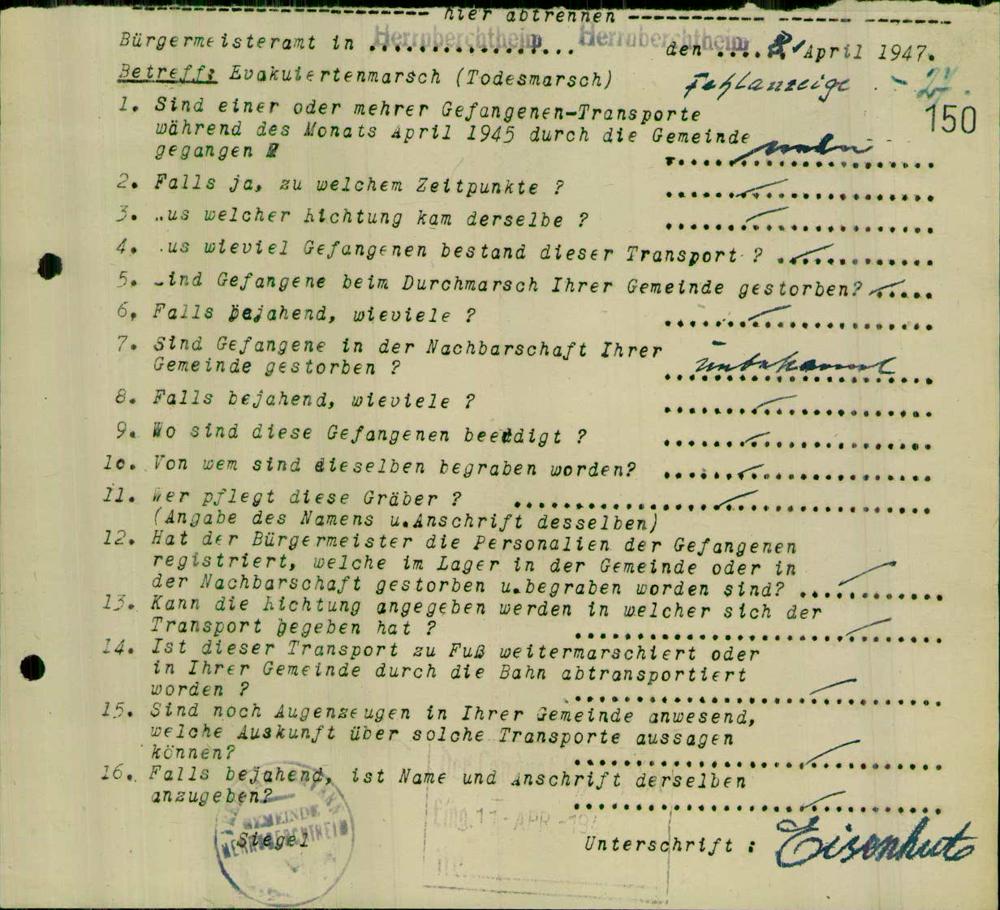 hier abtrennen
Bürgermeisteramt in Herrnberchtheim Herrnberchtheim den 8. April 1947.
Betreff: Evakuiertenmarsch (Todesmarsch) Fehlanzeige
150
1. Sind einer oder mehrer Gefangenen-Transporte
während des Monats April 1945 durch die Gemeinde
gegangen ? nein
2. Falls ja, zu welchem Zeitpunkte ?
3. .us welcher Richtung kam derselbe ?
4. .us wieviel Gefangenen bestand dieser Transport ?
5. .ind Gefangene beim Durchmarsch Ihrer Gemeinde gestorben?
6. Falls bejahend, wieviele ?
7. Sind Gefangene in der Nachbarschaft Ihrer
Gemeinde gestorben ? unbekannt
8. Falls bejahend, wieviele ?
9. Wo sind diese Gefangenen beerdigt ?
1o. Von wem sind dieselben begraben worden?
11. Wer pflegt diese Gräber ?
(Angabe des Namens u.Anschrift desselben)
12. Hat der Bürgermeister die Personalien der Gefangenen
registriert, welche im Lager in der Gemeinde oder in
der Nachbarschaft gestorben u.begraben worden sind?
13. Kann die Richtung angegeben werden in welcher sich der
Transport gegeben hat ?
14. Ist dieser Transport zu Fuß weitermarschiert oder
in Ihrer Gemeinde durch die Bahn abtransportiert
worden ?
15. Sind noch Augenzeugen in Ihrer Gemeinde anwesend,
welche Auskunft über solche Transporte aussagen
können?
16. Falls bejahend, ist Name und Anschrift derselben
anzugeben?
GEMEINDE
HERRNBERCHTHEIM
Siegel
Eing. 11. APR. 194
Unterschrift : Eisenhut